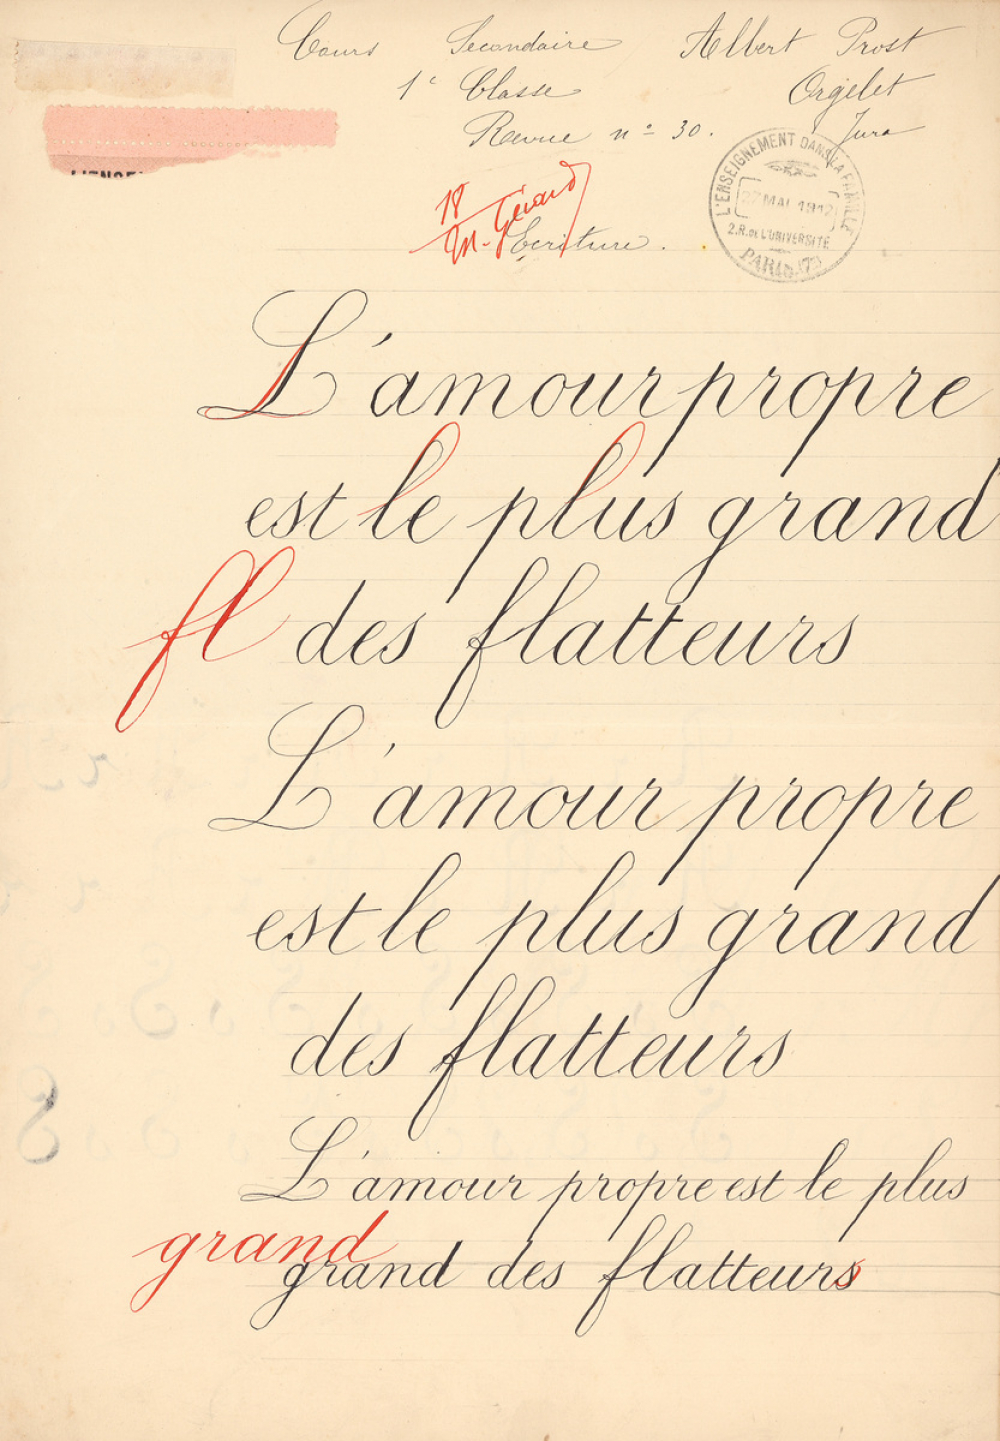 Cours Secondaire Albert Prost
1e Classe Orgelet
Revue no 30. Jura
L'ENSEIGNEMENT DANS LA FAMILLE
27 MAI 1912
2.R.DE L'UNIVERSITÉ
PARIS
18
M. Gérard
Ecriture.
L'amour propre
est le plus grand
fl des flatteurs
L'amour propre
est le plus grand
des flatteurs
L'amour propre est le plus
grand
grand des flatteurs